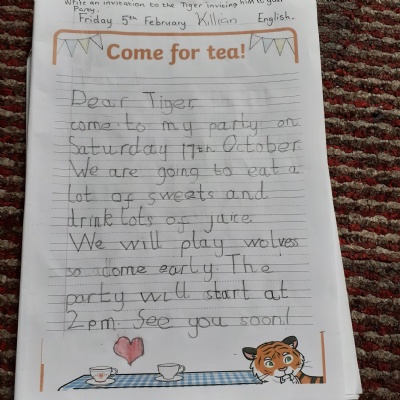 Write an invitation to the Tiger inviting him to your
Party.
Friday 5th February Killian English.
Come for tea!
Dear Tiger
come to my party on
Saturday 17th October
We are going to eat a
lot of sweets and
drink lots of juice.
We will play wolves
so come early. The
party will start at
2pm. See you soon!